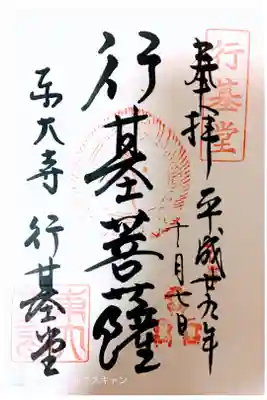 行基堂
奉拝
平成廿九年
十月七日
行基菩薩
東大寺 行基堂